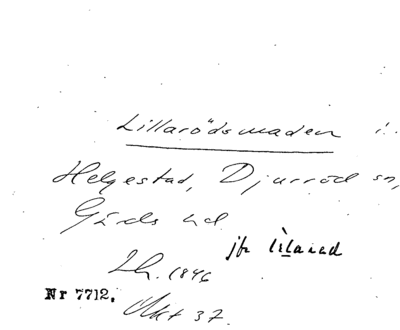 Lillarödsmaden i
Helgestad, Djurröd sn,
Gärds hd
jfr
Lh. 1846
Nr 7712.
Akt 37.